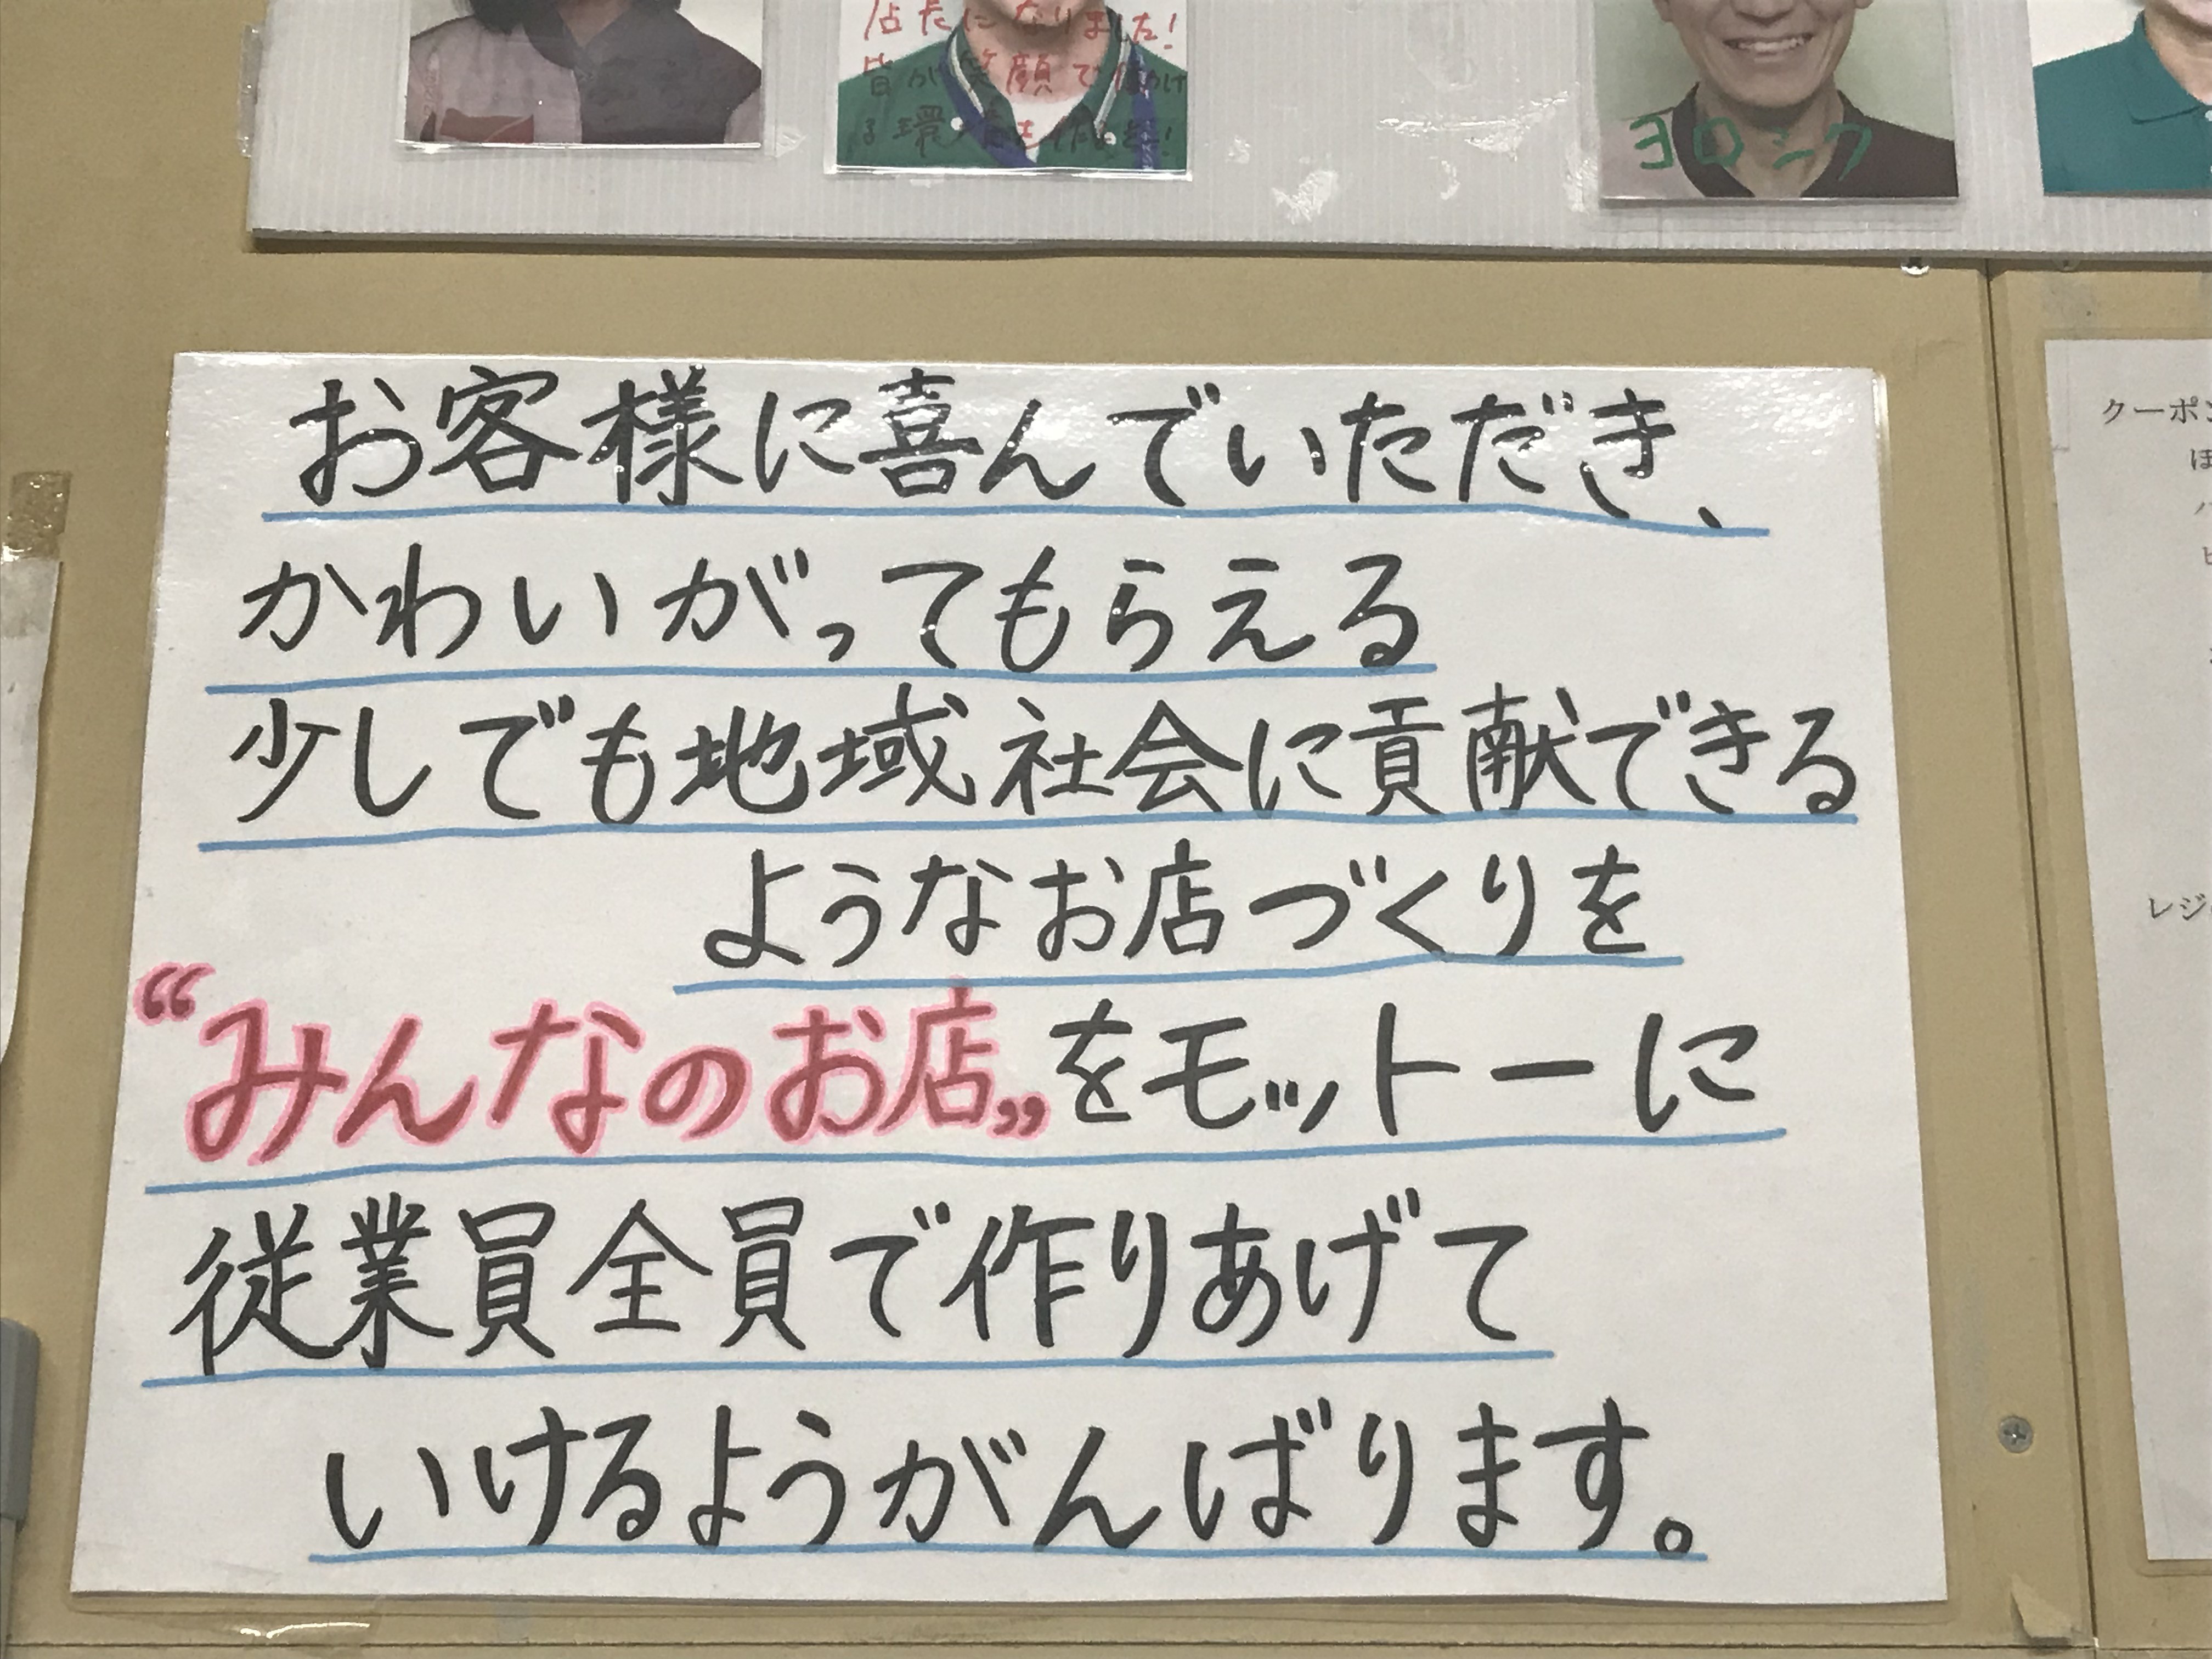 店長になりました!
皆が笑顔で働け
る環境を作ります!
ヨロシク
お客様に喜んでいただき、
かわいがってもらえる
少しでも地域社会に貢献できる
ようなお店づくりを
“みんなのお店„をモットーに
従業員全員で作りあげて
いけるようがんばります。
クーポン
ほ
レジ